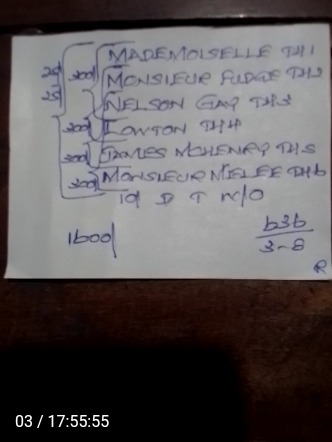 MADEMOISELLE TH1
MONSIEUR FUDGE TH2
NELSON GAY TH3
LOWTON TH4
JAMES MCHENRY TH5
MONSIEUR MELEE TH6
101 D T n/o
25
25
300
300
300
300
1600/
636
3-8
R
03 / 17:55:55